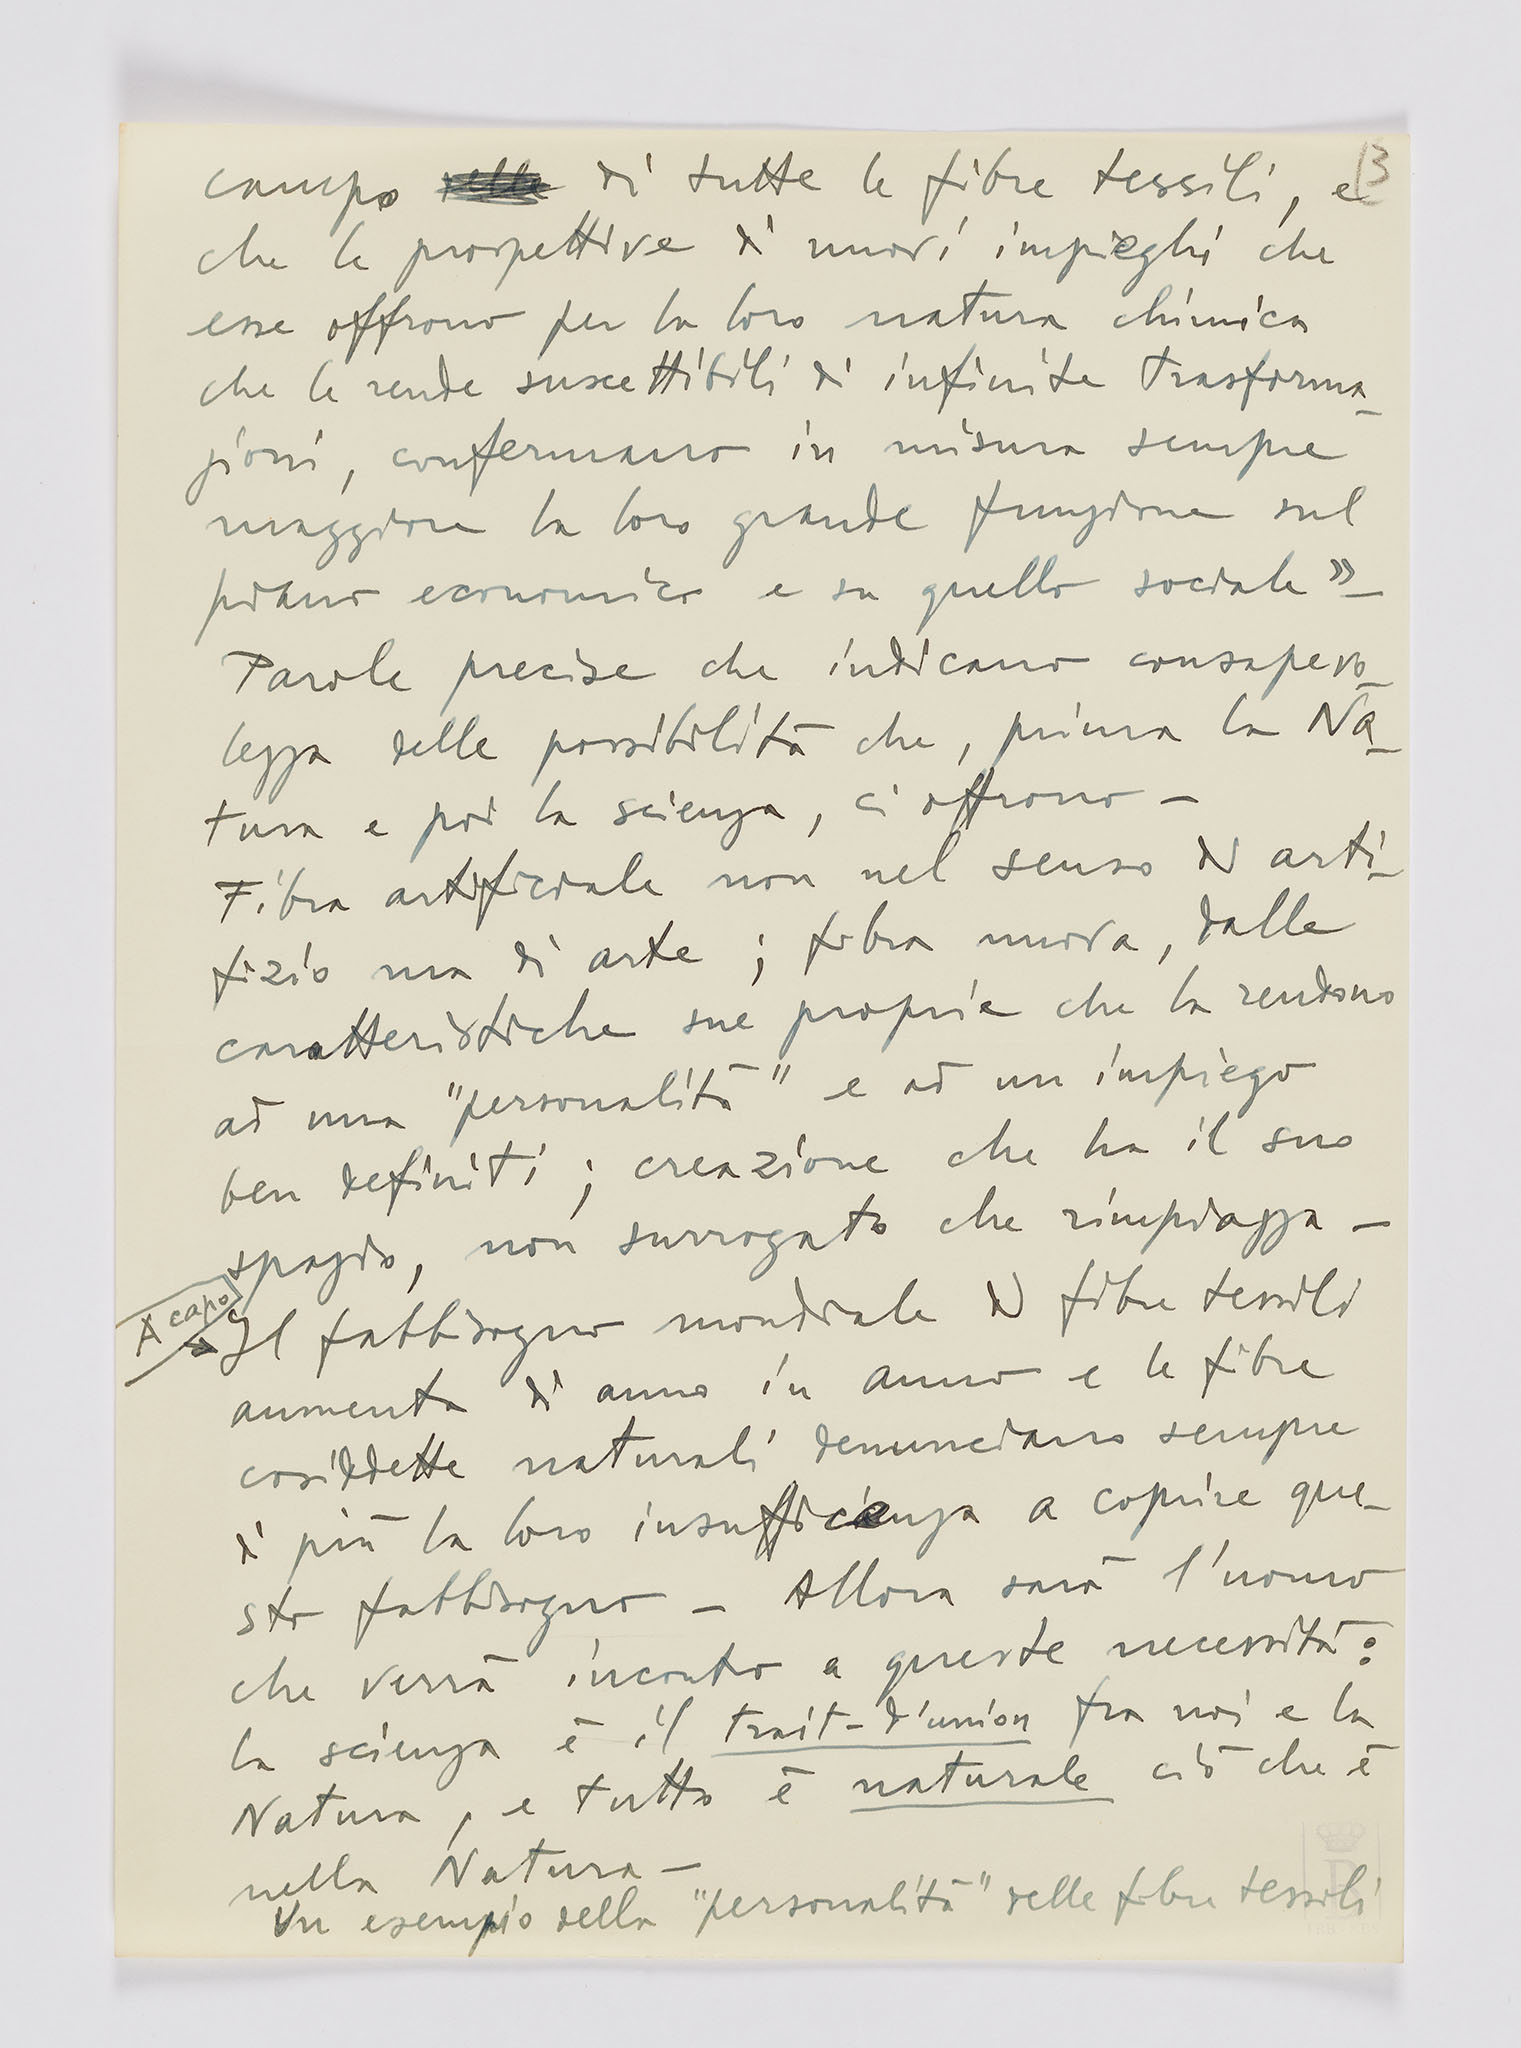 13
campo di tutte le fibre tessili, e
che le prospettive di nuovi impieghi che
esse offrono per la loro natura chimica
che le rende suscettibili di infinite trasforma-
zioni, confermano in misura sempre
maggiore la loro grande funzione sul
piano economico e su quello sociale"-
Parole precise che indicano consapevo-
lezza delle possibilità che, prima la Na-
tura e poi la scienza, ci offrono -
Fibra artificiale non nel senso di arti-
fizio ma di arte; fibra nuova, dalle
caratteristiche sue proprie che la rendono
ad una "personalità" e ad un impiego
ben definiti; creazione che ha il suo
spazio, non surrogato che rimpiazza -
A capo
Il fabbisogno mondiale di fibre tessili
aumenta di anno in anno e le fibre
cosiddette naturali denunciano sempre
di più la loro insufficienza a coprire que-
sto fabbisogno - Allora sarà l'uomo
che verrà incontro a queste necessità:
la scienza è il trait-d'union fra noi e la
Natura, e tutto è naturale ciò che è
nella Natura -
Un esempio della "personalità" delle fibre tessili